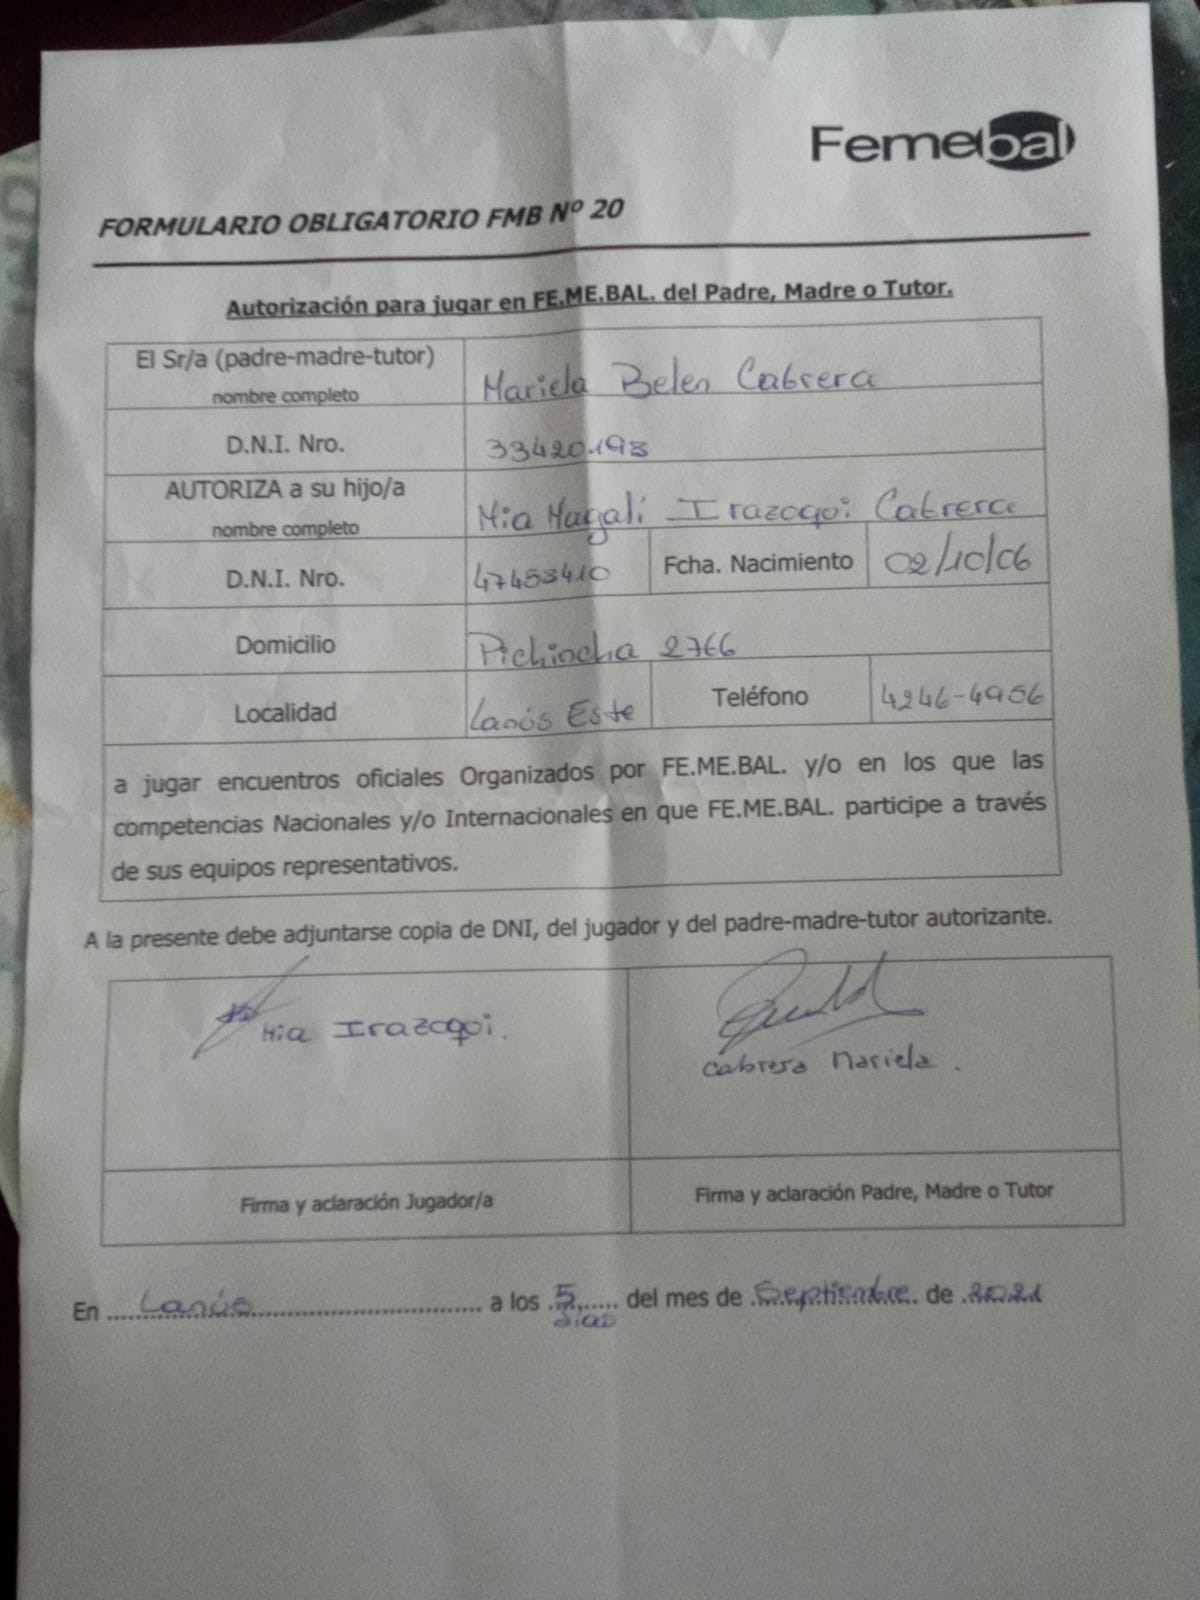 Femebal
FORMULARIO OBLIGATORIO FMB Nº 20
Autorización para jugar en FE.ME.BAL. del Padre, Madre o Tutor.
El Sr/a (padre-madre-tutor)
nombre completo
Mariela Belen Cabrera
D.N.I. Nro.
33420.198
AUTORIZA a su hijo/a
nombre completo
Mia Magali Irazoqui Cabrera
D.N.I. Nro.
47453410
Fcha. Nacimiento
02/10/06
Domicilio
Pichincha 2766
Localidad
Lanús Este
Teléfono
4246-4956
a jugar encuentros oficiales Organizados por FE.ME.BAL. y/o en los que las
competencias Nacionales y/o Internacionales en que FE.ME.BAL. participe a través
de sus equipos representativos.
A la presente debe adjuntarse copia de DNI, del jugador y del padre-madre-tutor autorizante.
Mia Irazoqui.
Cabrera Mariela.
Firma y aclaración Jugador/a
Firma y aclaración Padre, Madre o Tutor
En Lanús a los 5 días del mes de Septiembre de 2021